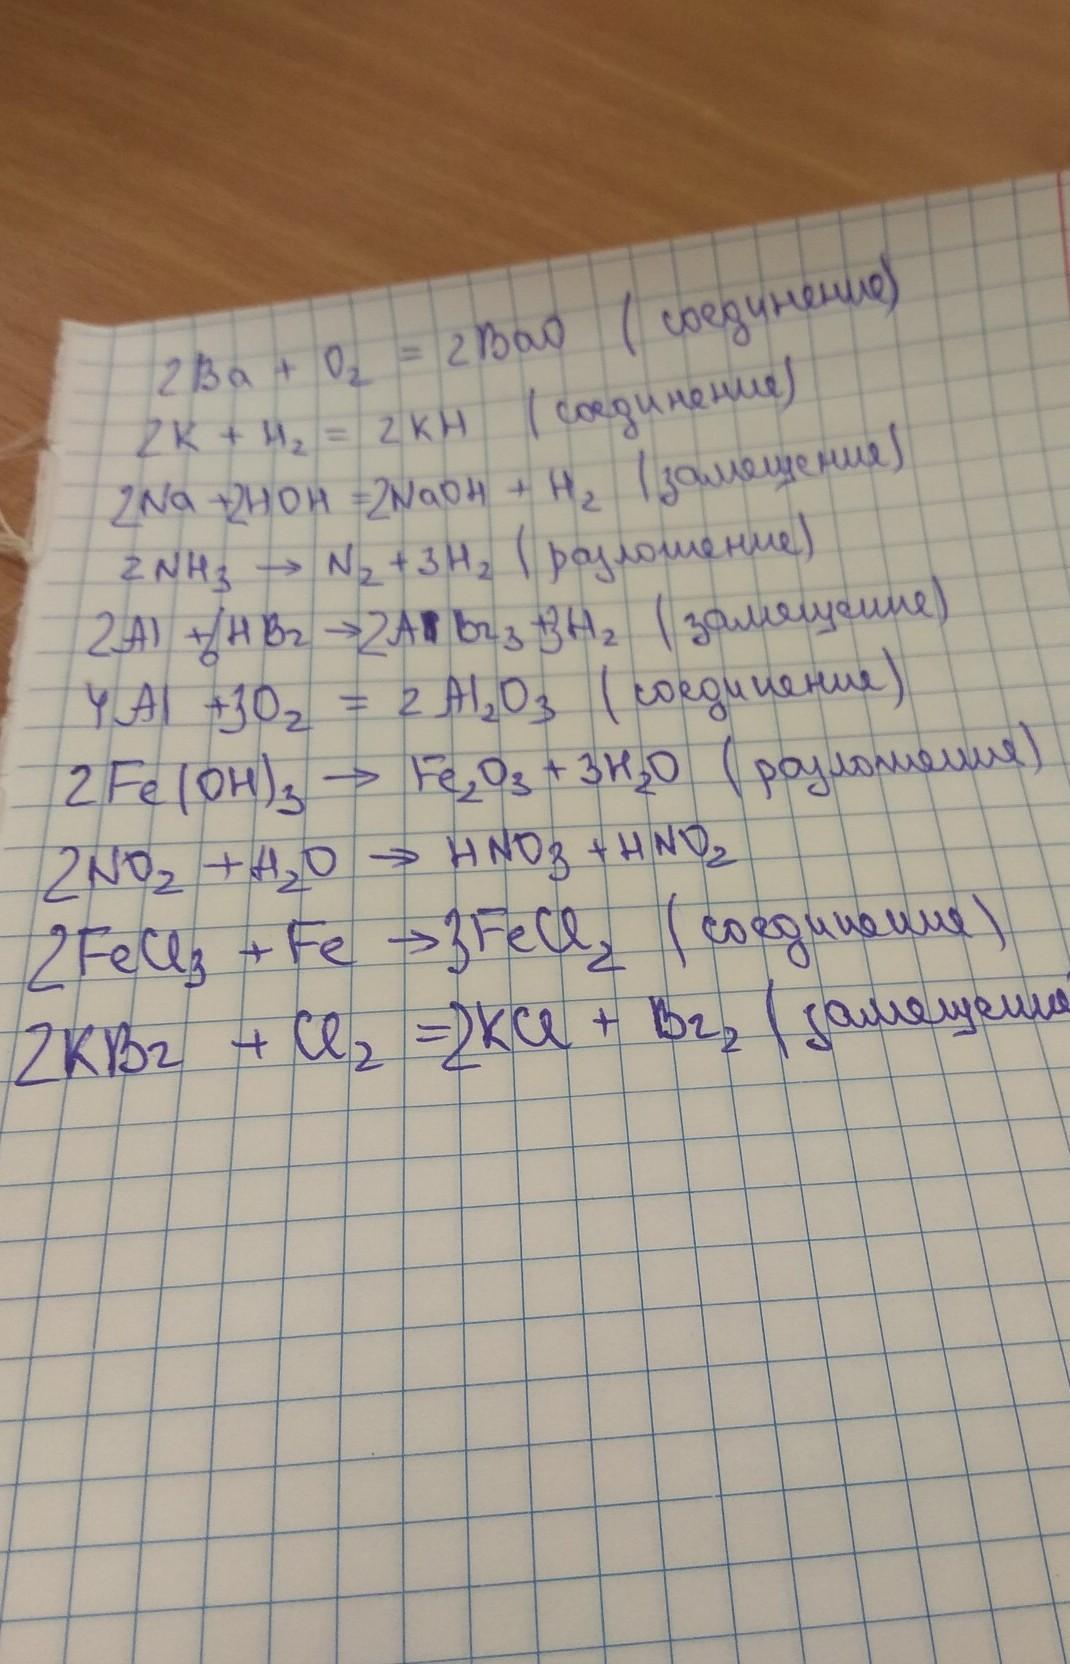 2Ba + O₂ = 2BaO (соединение)
2K + H₂ = 2KH (соединение)
2Na + 2HOH = 2NaOH + H₂ (замещение)
2NH₃ → N₂ + 3H₂ (разложение)
2Al + 6HBr → 2AlBr₃ + 3H₂ (замещение)
4Al + 3O₂ = 2Al₂O₃ (соединение)
2Fe(OH)₃ → Fe₂O₃ + 3H₂O (разложение)
2NO₂ + H₂O → HNO₃ + HNO₂
2FeCl₃ + Fe → 3FeCl₂ (соединение)
2KBr + Cl₂ = 2KCl + Br₂ (замещение